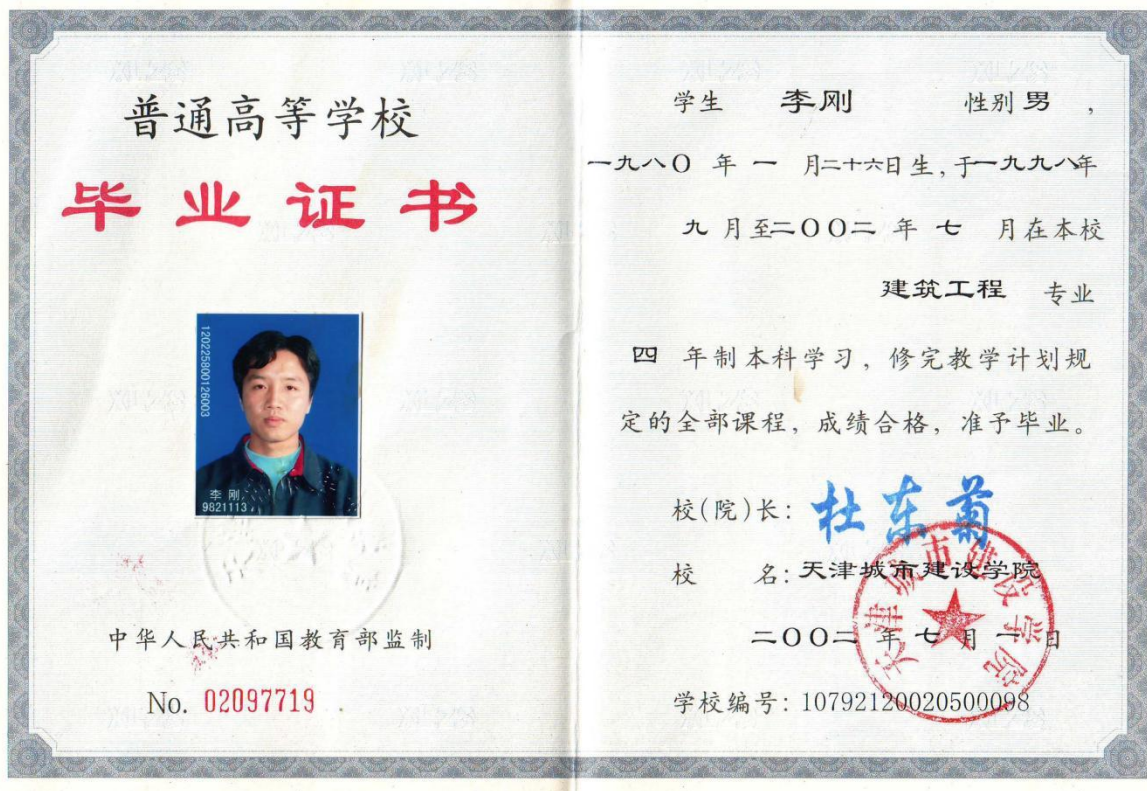 普通高等学校
毕业证书
120225800126003
李刚
9821113
中华人民共和国教育部监制
No. 02097719
学生 李刚 性别 男,
一九八〇年一月二十六日生,于一九九八年
九月至二〇〇二年七月在本校
建筑工程 专业
四年制本科学习,修完教学计划规
定的全部课程,成绩合格,准予毕业。
校(院)长:杜东菊
校 名:天津城市建设学院
天津城市建设学院
二〇〇二年七月一日
学校编号:10792120020500098